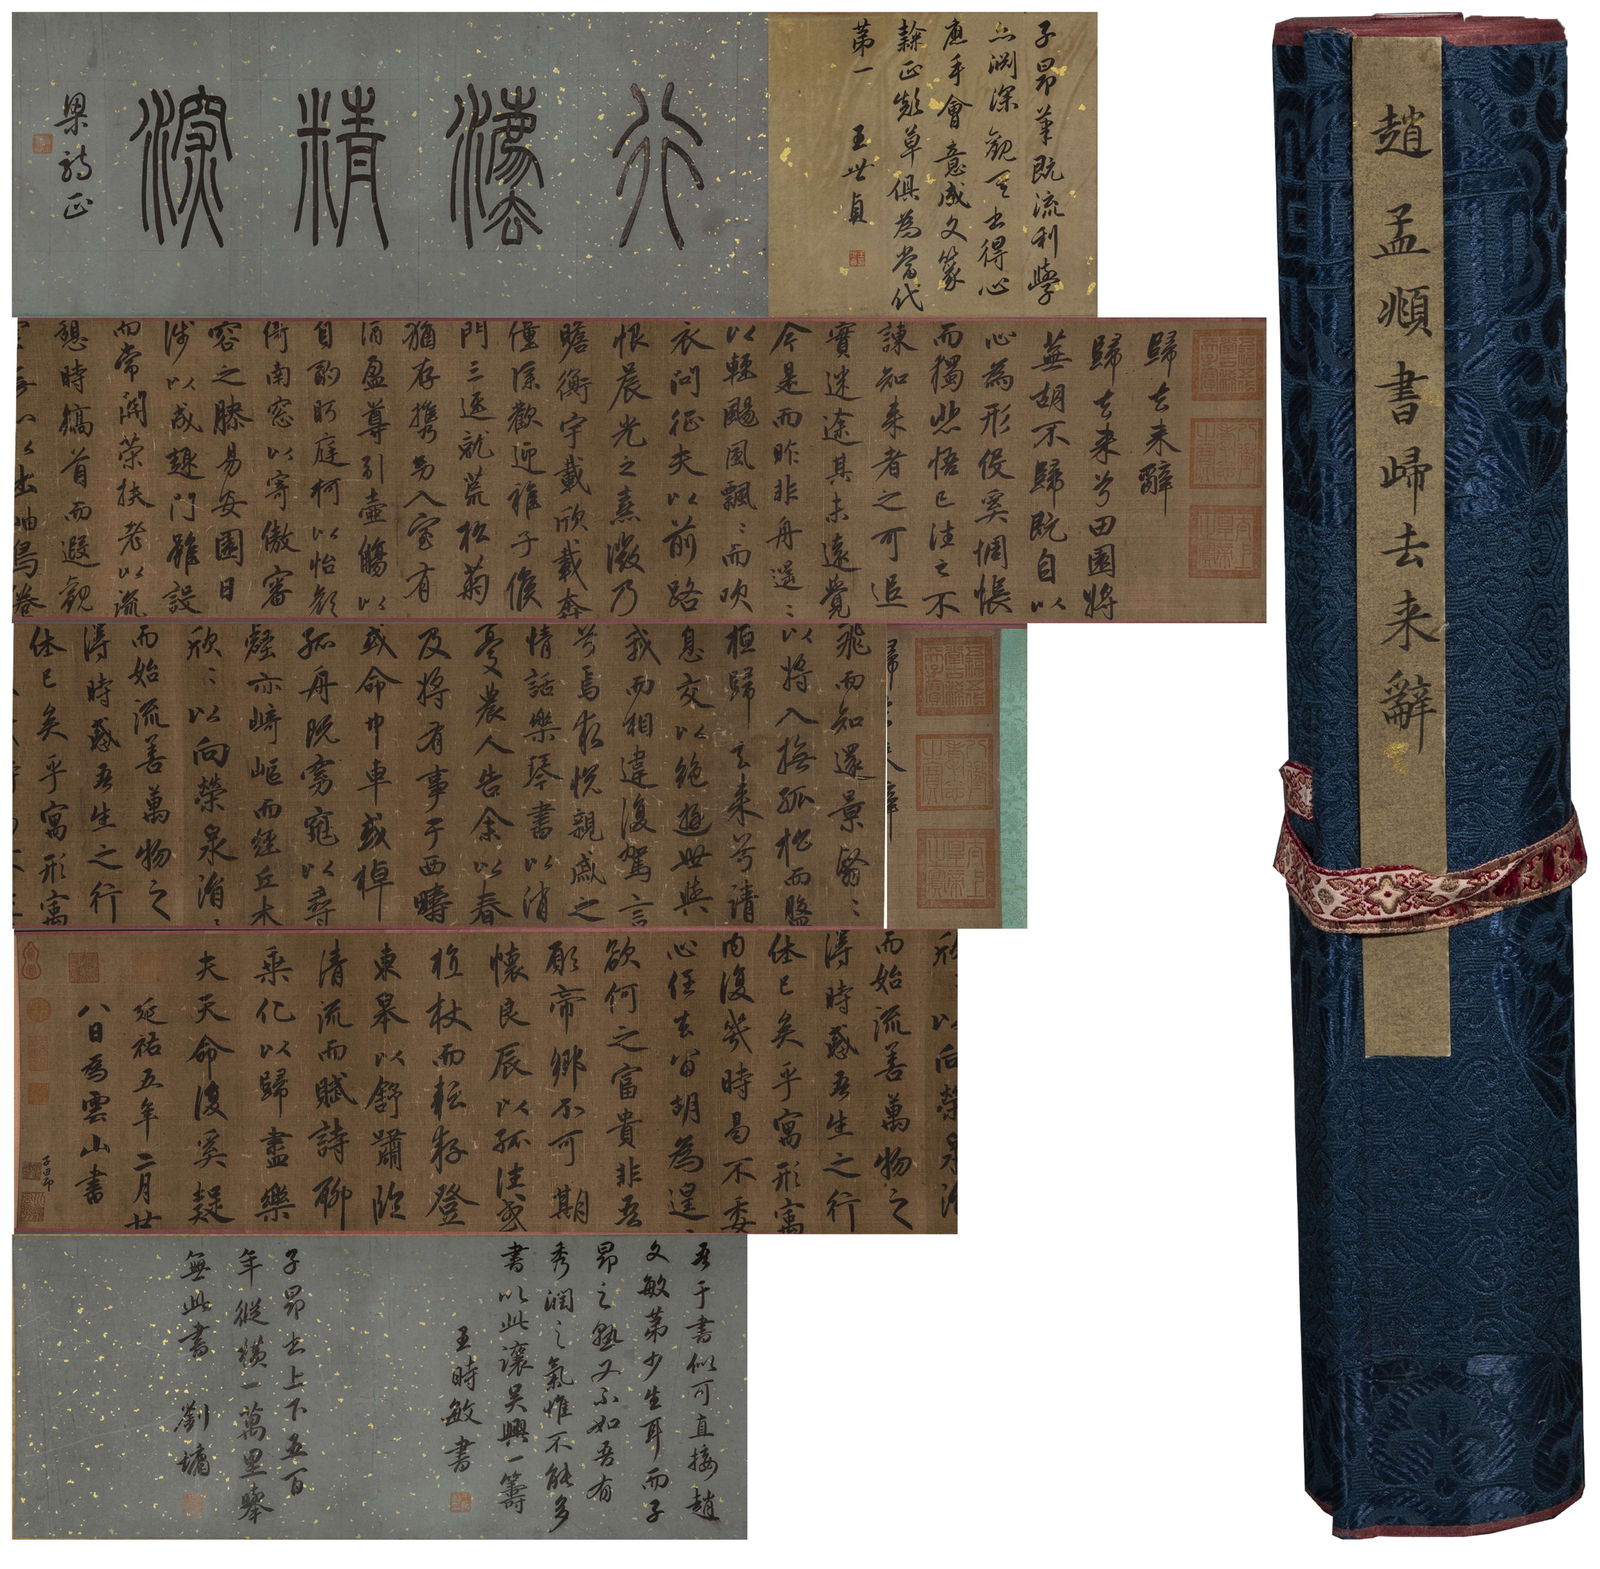 子昂筆既流利學
亦淵深觀其書得心
應手會意成文篆
隸正顛草俱為當代
第一 王世貞
行灋精深
梁詩正
歸去来辭
歸去来兮田園將
蕪胡不歸既自以
心為形役奚惆悵
而獨悲悟已往之不
諫知来者之可追
實迷途其未遠覺
今是而昨非舟遥ミ
以輕颺風飄ミ而吹
衣问征夫以前路
恨晨光之熹微乃
瞻衡宇載欣載奔
僮僕歡迎稚子候
門三逕就荒松菊
猶存携幼入室有
酒盈尊引壺觴以
自酌眄庭柯以怡顔
倚南窓以寄傲審
容之膝易安園日
涉以成趣门雖設
而常関策扶老以流
憩時矯首而遐觀
以出岫鳥卷
飛而知還景翳ミ
以將入撫孤松而盤
桓歸去来兮請
息交以絶遊世與
我而相違復駕言
兮焉求悦親戚之
情話樂琴書以消
憂農人告余以春
及將有事于西疇
或命巾車或棹
孤舟既窈窕以尋
壑亦崎嶇而經丘木
欣ミ以向榮泉涓ミ
而始流善萬物之
得時感吾生之行
休已矣乎寓形寓
以向榮泉涓
而始流善萬物之
得時感吾生之行
休已矣乎寓形寓
内復幾時曷不委
心任去留胡為遑ミ
欲何之富貴非吾
願帝鄉不可期
懷良辰以孤往或
植杖而耘耔登
東皋以舒嘯臨
清流而賦詩聊
乘化以歸盡樂
夫天命復奚疑
延祐五年二月廿
八日為雲山書
子昂
吾于書似可直接趙
文敏第少生耳而子
昂之熟又不如吾有
秀潤之氣惟不能多
書以此讓吴興一籌
王時敏書
子昂去上下五百
年縱橫一萬里舉
無此書 劉墉
趙孟頫書歸去来辭